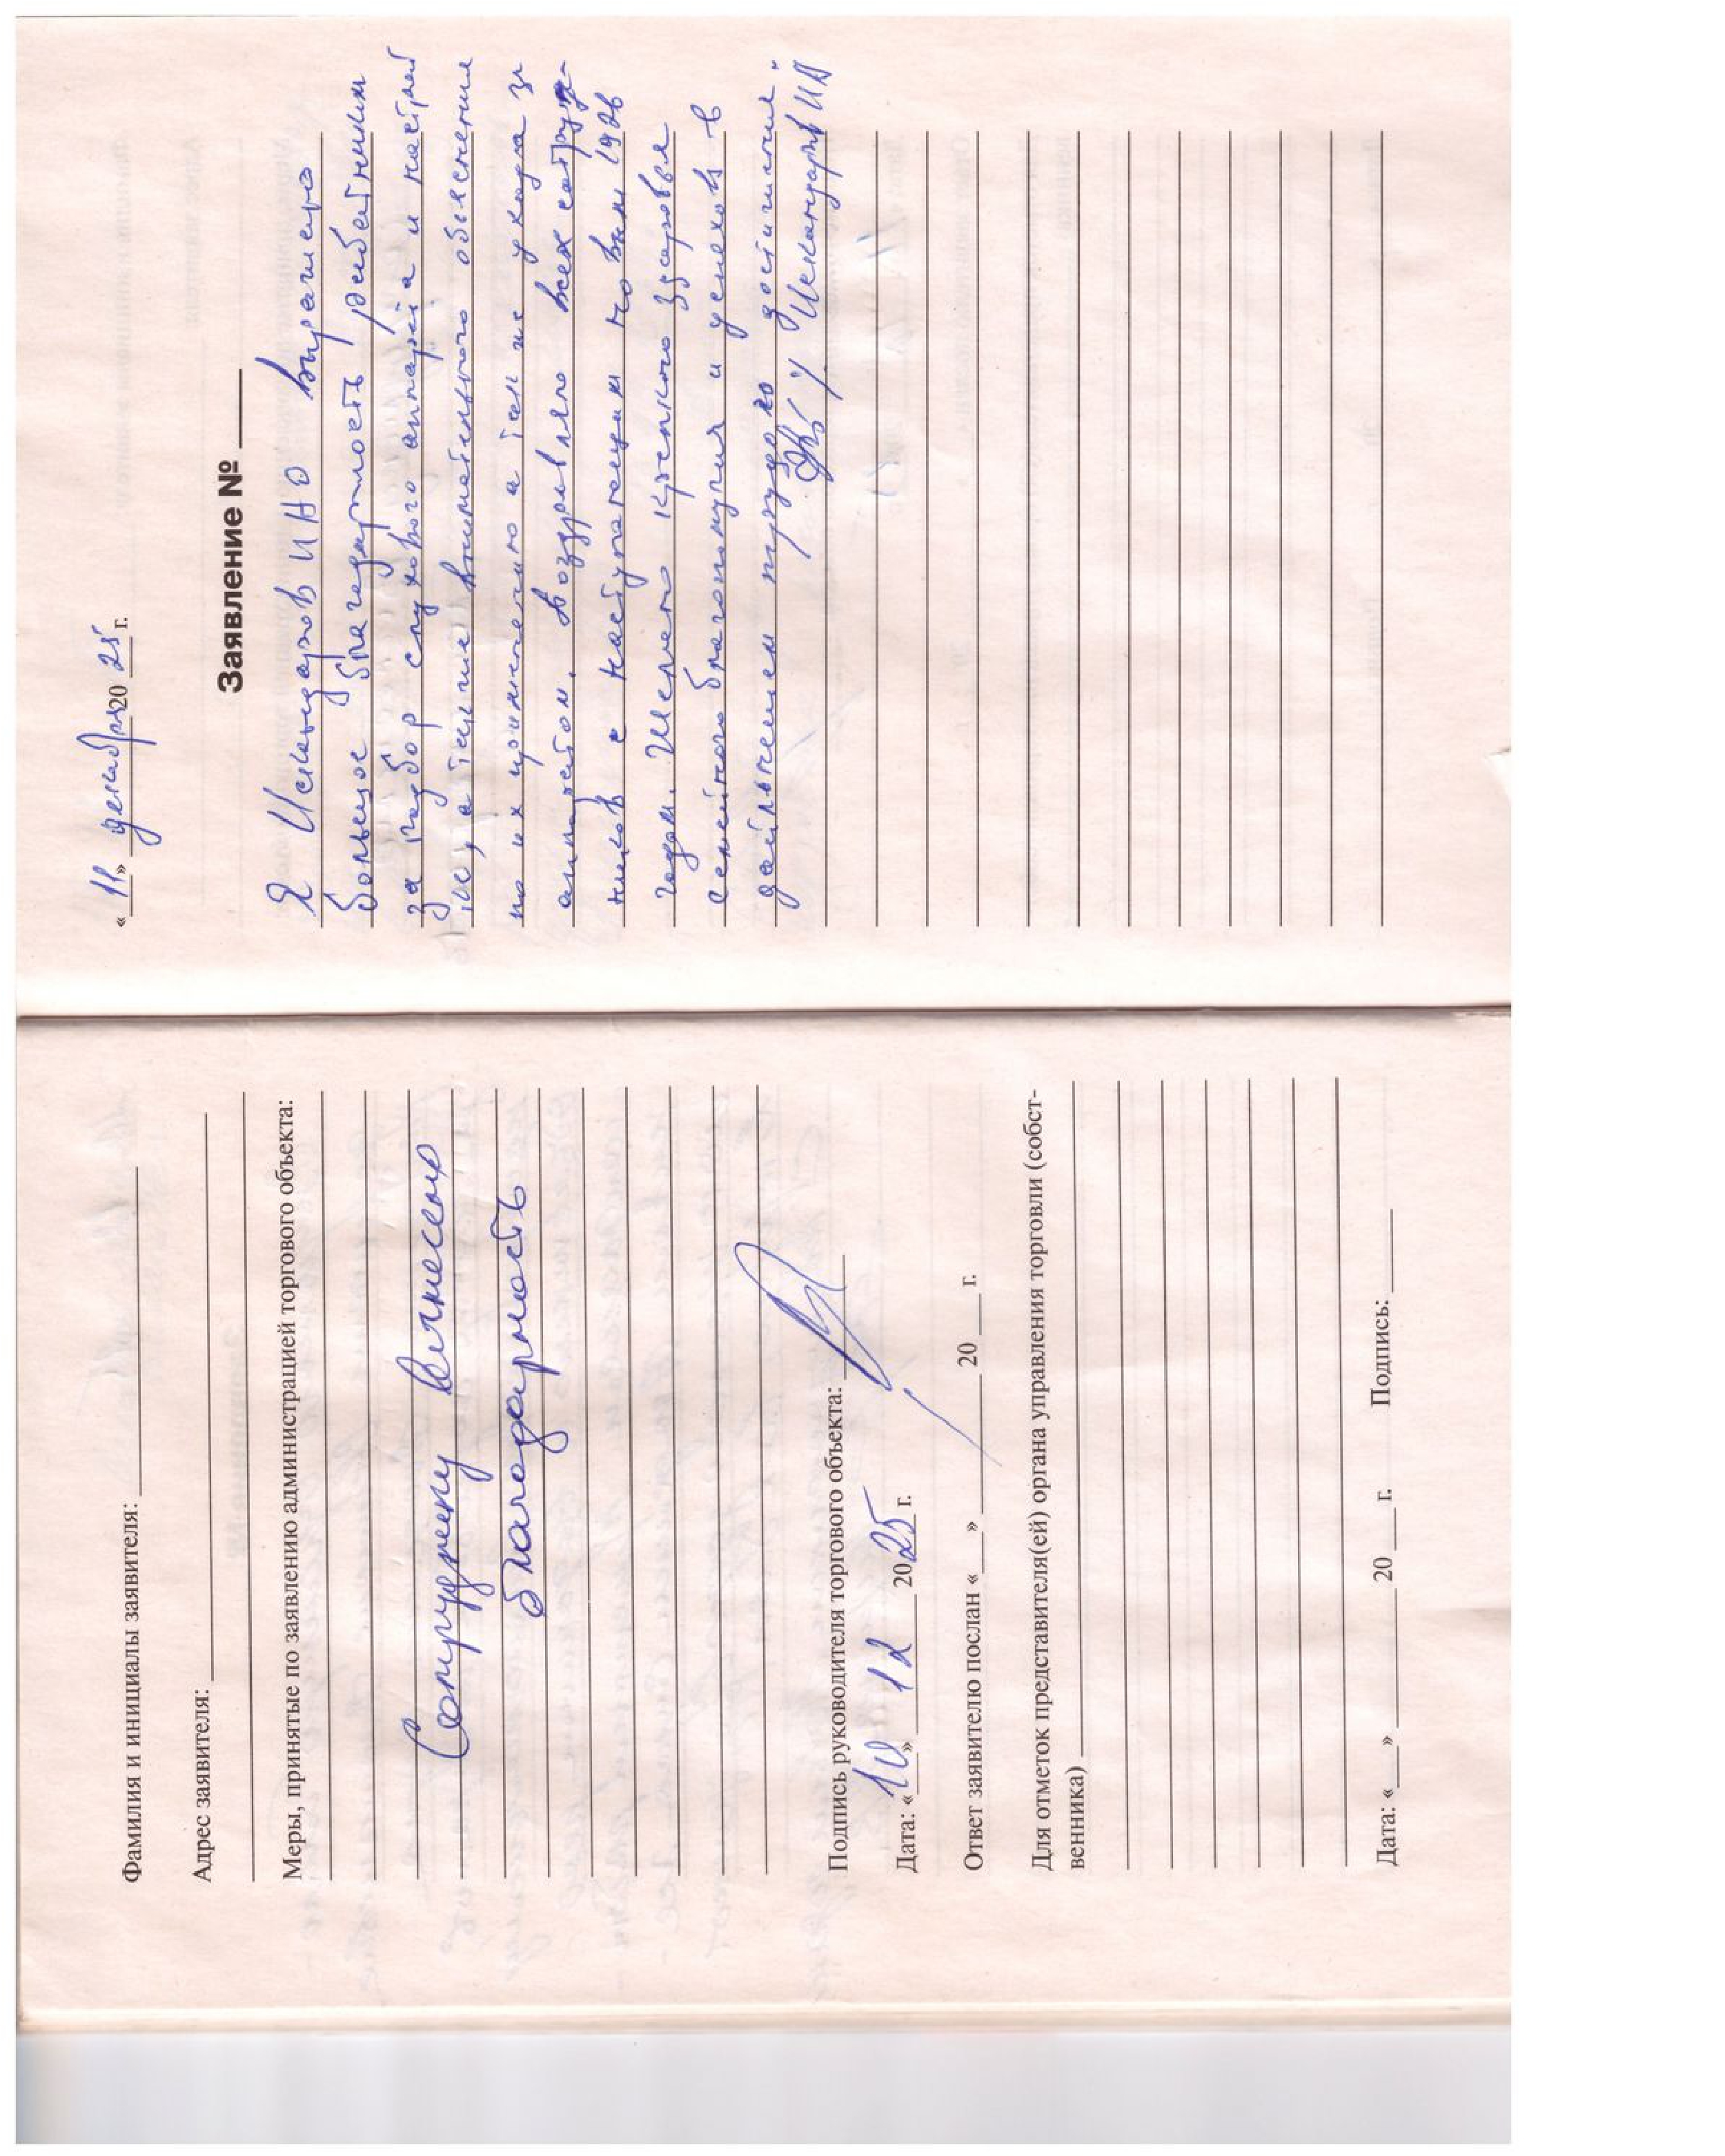 Фамилия и инициалы заявителя: ____
Адрес заявителя: ____
Меры, принятые по заявлению администрацией торгового объекта:
Сотруднику вынесена
благодарность
Подпись руководителя торгового объекта: ____
Дата: «10» 12 2025 г.
Ответ заявителю послан «__» ____ 20 __ г.
Для отметок представителя(ей) органа управления торговли (собст-
венника) ____
Дата: «__» ____ 20 __ г. Подпись: ____
«11» декабря 2025 г.
Заявление № ____
Я Искандаров И Ю выражаю
большое благодарность работникам
за подбор слухового аппарата и настрой
а также внимательного объяснения
по их применению а так же ухода за
аппаратом. Поздравляю всех сотруд-
ников с наступающим новым 1926
годом. Желаю крепкого здоровья
семейного благополучия и успехов в
дальнейшем трудово достижений
Искандаров И